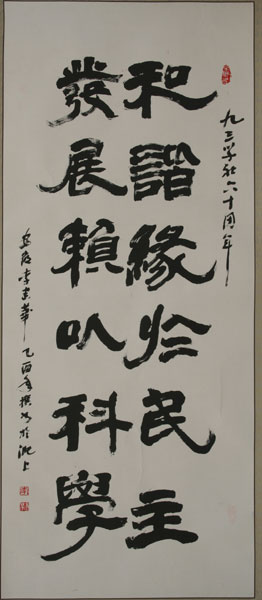 九三学社六十周年
和諧緣於民主
發展賴以科學
乙酉年撰书於淝上